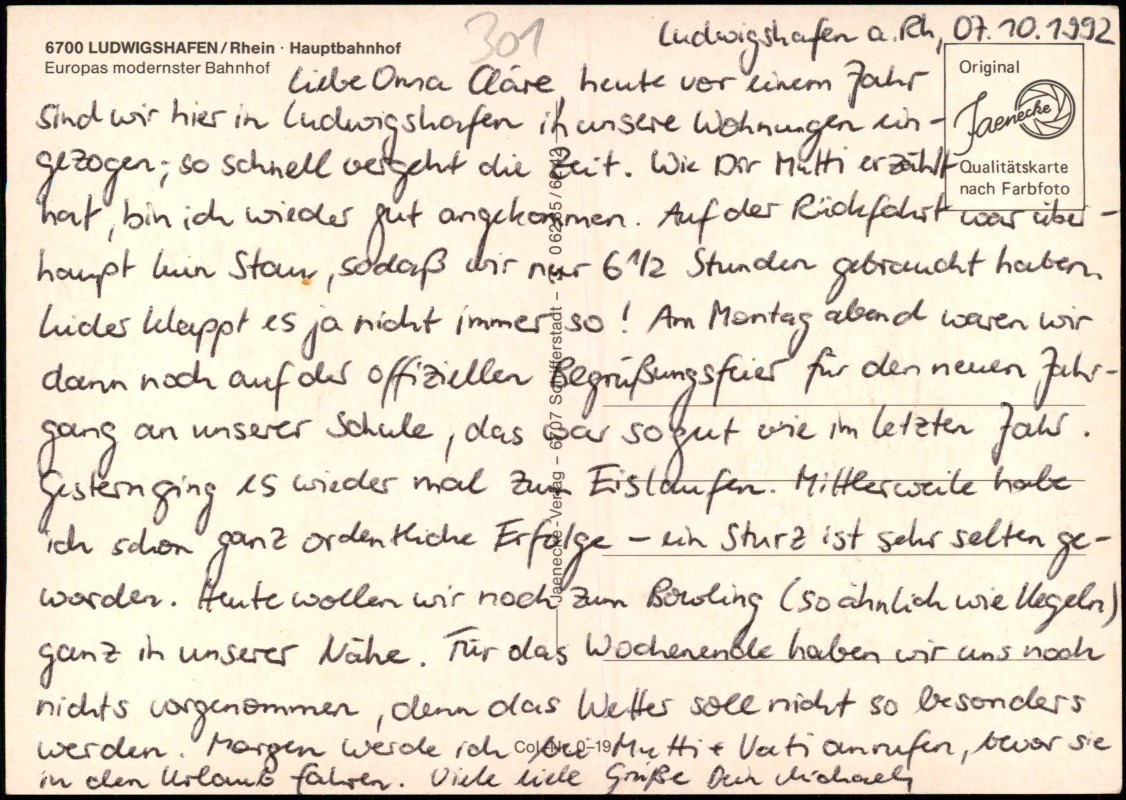 301
Ludwigshafen a. Rh, 07.10.1992
6700 LUDWIGSHAFEN/Rhein · Hauptbahnhof
Europas modernster Bahnhof
Original
Jaenecke
Qualitätskarte
nach Farbfoto
Liebe Oma Cläre heute vor einem Jahr
sind wir hier in Ludwigshafen in unsere Wohnungen ein-
gezogen; so schnell vergeht die Zeit. Wie Dir Mutti erzählt
hat, bin ich wieder gut angekommen. Auf der Rückfahrt war über-
haupt kein Stau, sodaß wir nur 6 1/2 Stunden gebraucht haben.
Leider klappt es ja nicht immer so! Am Montag abend waren wir
dann noch auf der offiziellen Begrüßungsfeier für den neuen Jahr-
gang an unserer Schule, das war so gut wie im letzten Jahr.
Gestern ging es wieder mal zum Eislaufen. Mittlerweile habe
ich schon ganz ordentliche Erfolge - ein Sturz ist sehr selten ge-
worden. Heute wollen wir noch zum Bowling (so ähnlich wie Kegeln)
ganz in unserer Nähe. Für das Wochenende haben wir uns noch
nichts vorgenommen, denn das Wetter soll nicht so besonders
werden. Morgen werde ich bei Mutti + Vati anrufen, bevor sie
in den Urlaub fahren. Viele liebe Grüße Dein Michael
Jaenecke-Verlag - 6707 Schifferstadt -